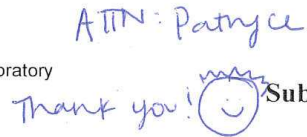 ATTN: Patryce
oratory
Thank you! Sub